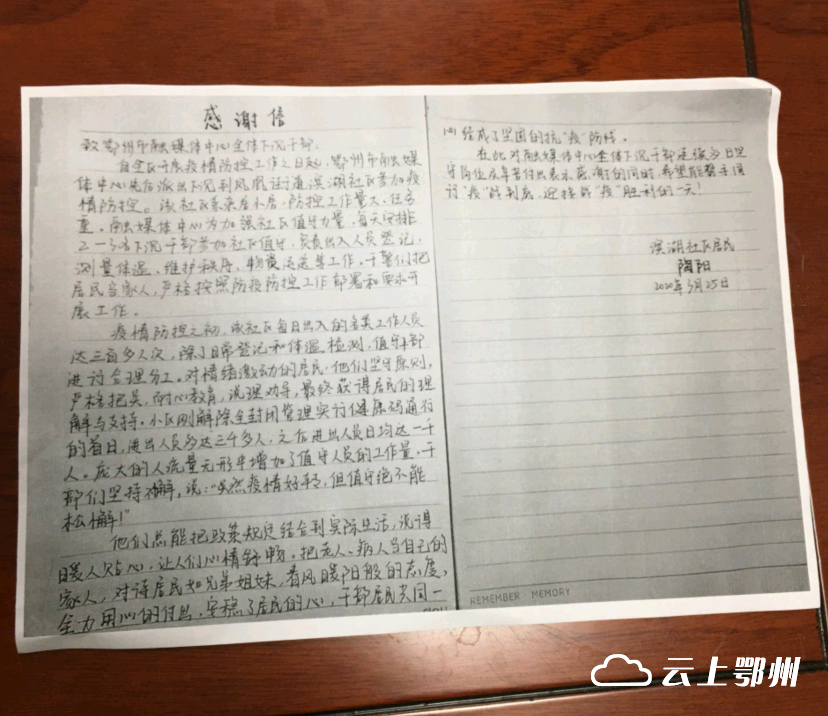 感谢信
致鄂州市融媒体中心全体下沉干部：
自全区开展疫情防控工作之日起，鄂州市融媒
体中心先后派出下沉到凤凰街道滨湖社区参加疫
情防控。该社区系老居小居，防控工作量大、任务
重。融媒体中心为加强社区值守力量，每天安排
2-3名下沉干部参加社区值守，负责出入人员登记，
测量体温、维护秩序、物资运送等工作。干部们把
居民当家人，严格按照防疫防控工作部署和要求开
展工作。
疫情防控之初，该社区每日出入的各类工作人员
达三百多人次，除了日常登记和体温检测，值守干部
进行合理分工。对情绪激动的居民，他们坚守原则，
严格把关，耐心教育，说理劝导，最终获得居民的理
解与支持。小区刚解除全封闭管理实行健康码通行
的首日，进出人员多达三千多人，之后进出人员日均达一千
人。庞大的人流量无形中增加了值守人员的工作量，干
部们坚持不懈，说："虽然疫情好转，但值守绝不能
松懈！"
他们总能把政策规定结合到实际生活，说得
暖人贴心，让人们心情舒畅。把老人、病人当自己的
家人，对待居民如兄弟姐妹，春风暖阳般的态度，
全力用心的付出，安稳了居民的心，干部居民共同一
心结成了坚固的抗"疫"防线。
在此对融媒体中心全体下沉干部连续多日坚
守岗位及辛苦付出表示感谢的同时，希望能携手同
行"疫"战到底，迎接战"疫"胜利的一天！
滨湖社区居民
陶阳
2020年3月25日
REMEMBER MEMORY
云上鄂州